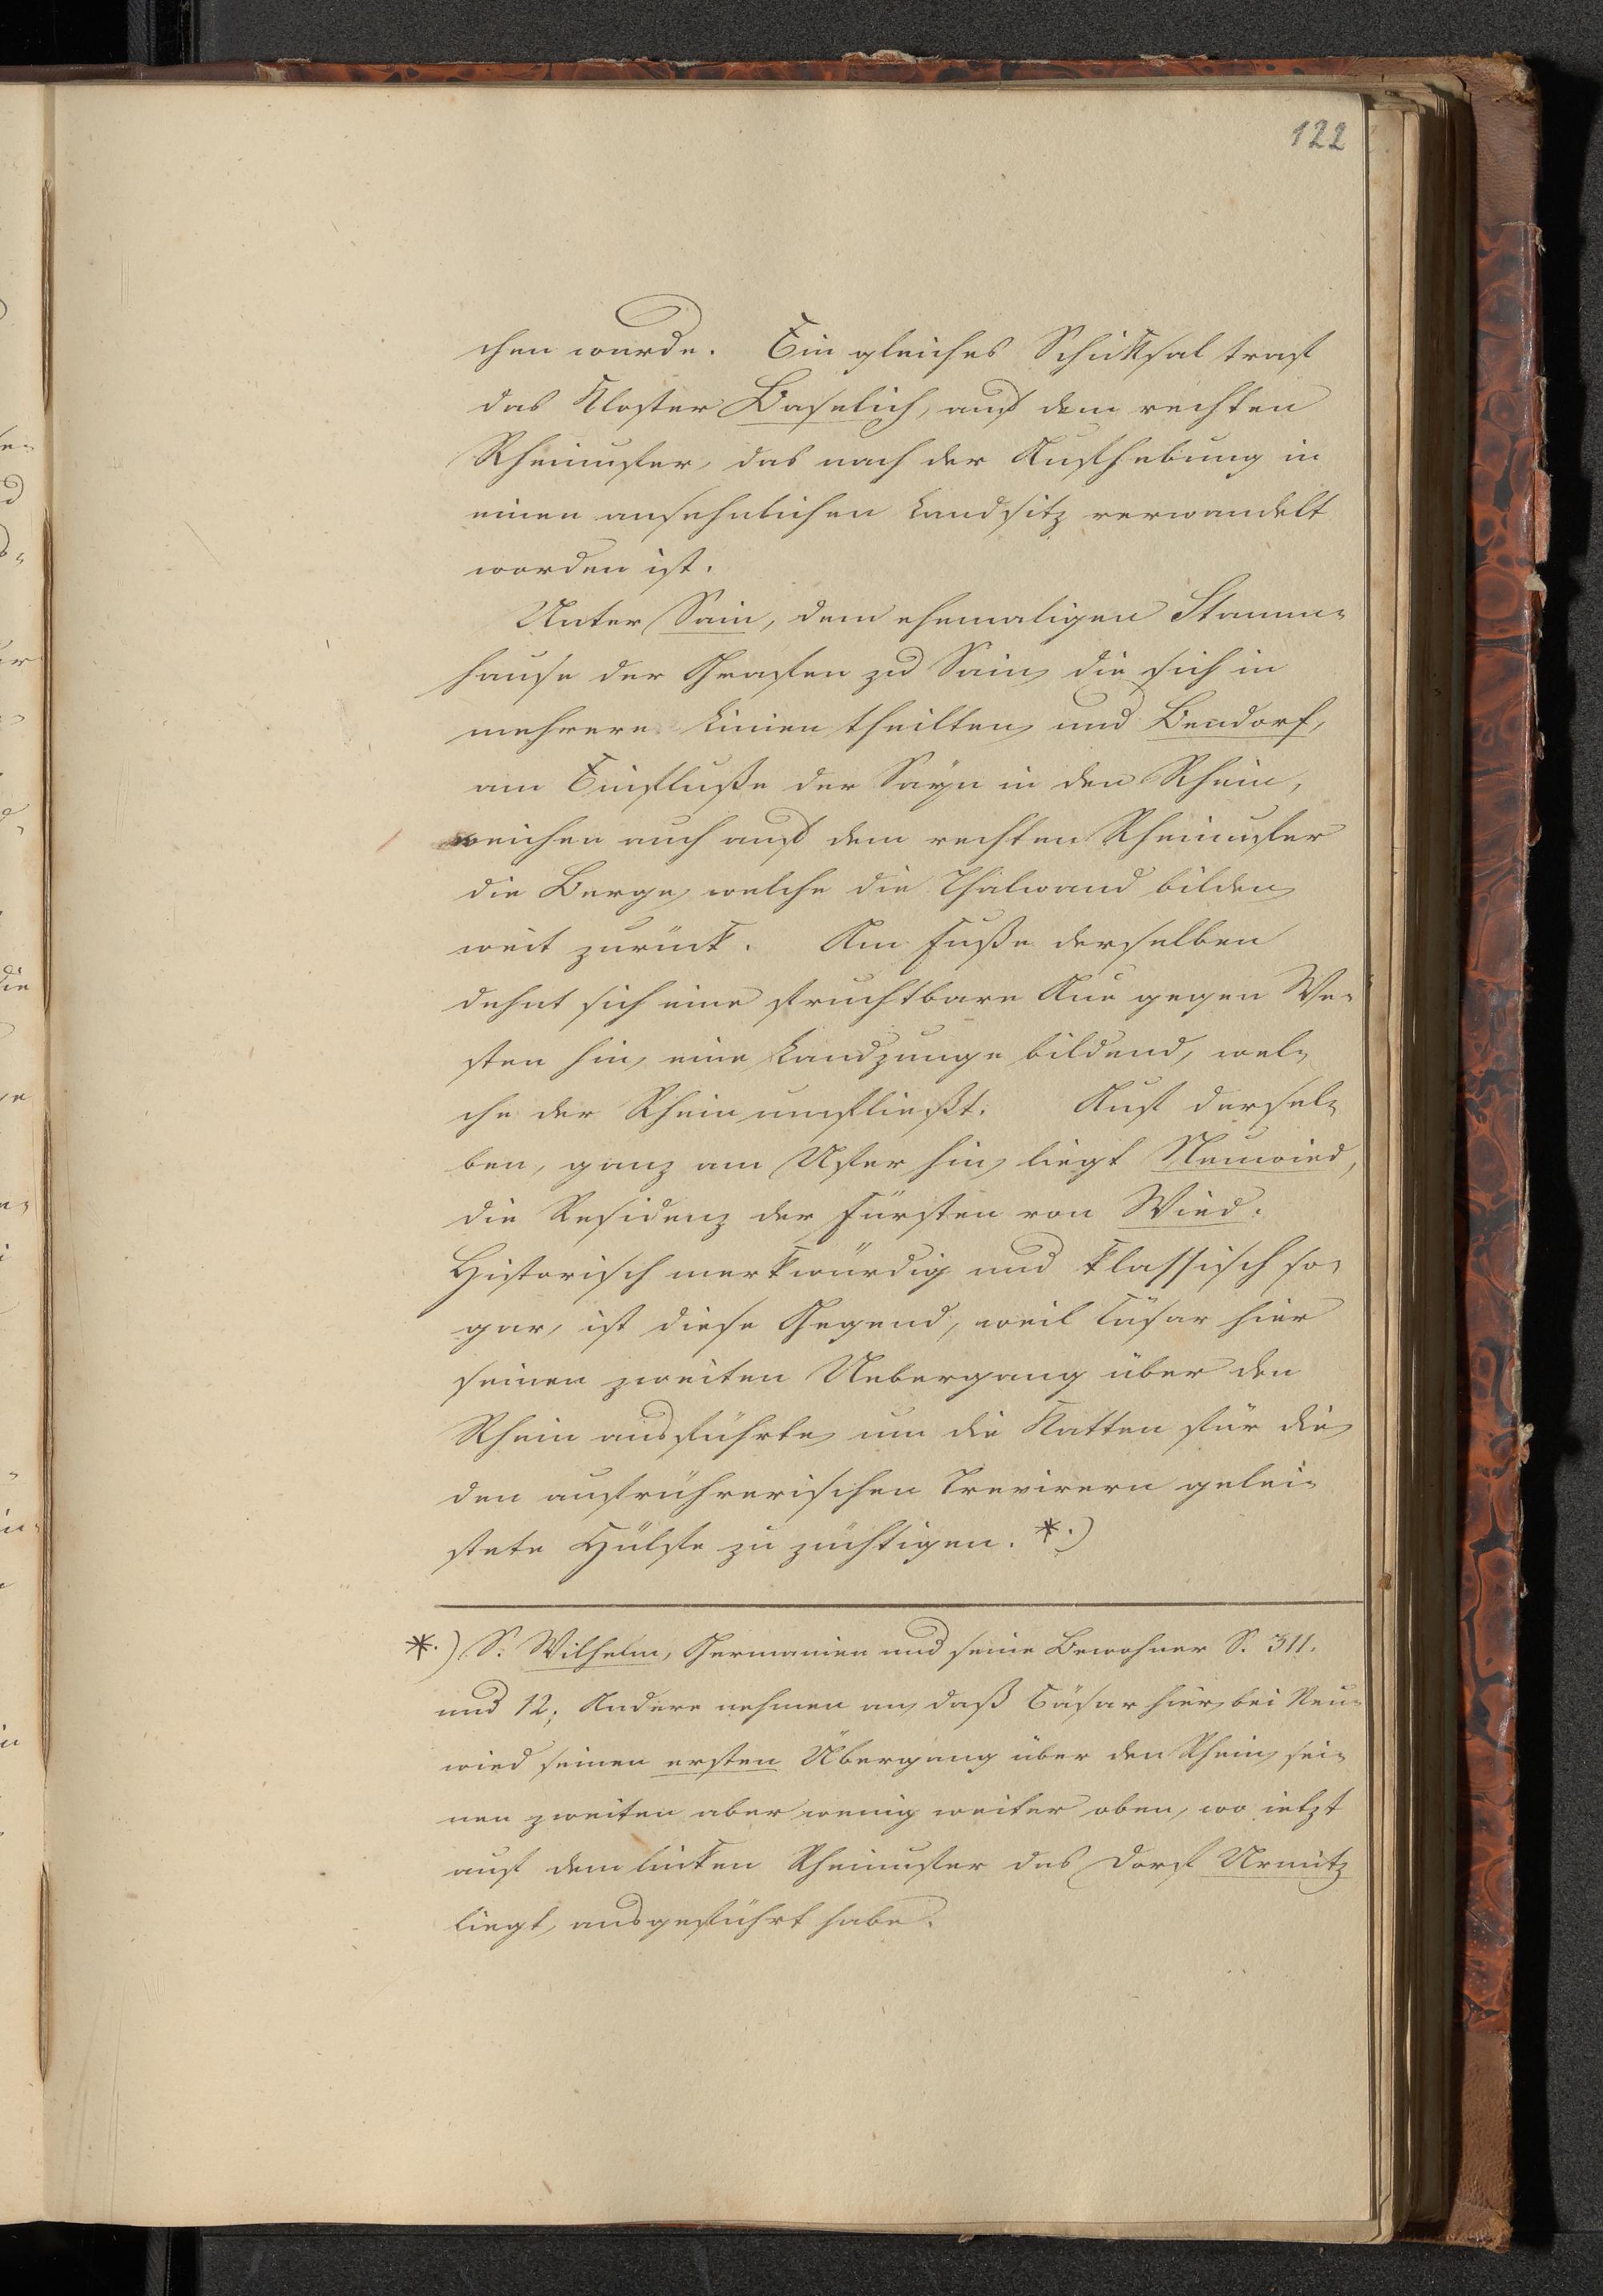 122
chen wurde. Ein gleiches Schicksal traf
das Kloster Baselich, auf dem rechten
Rheinufer, das nach der Aufhebung in
einen ansehnlichen Landsitz verwandelt
worden ist.
Unter Sain, dem ehemaligen Stamm-
hause der Grafen zu Sain, die sich in
mehrere Linien theilten, und Bendorf,
am Einfluße der Sayn in den Rhein,
weichen auch auf dem rechten Rheinufer
die Berge, welche die Thalwand bilden,
weit zurück. Am Fuße derselben
dehnt sich eine fruchtbare Aue gegen We-
sten hin, eine Landzunge bildend, wel-
che der Rhein umfließt. Auf dersel-
ben, ganz am Ufer hin, liegt Neuwied,
die Residenz der Fürsten von Wied.
Historisch merkwürdig und klassisch so-
gar, ist diese Gegend, weil Cäsar hier
seinen zweiten Uebergang über den
Rhein ausführte, um die Katten für die,
den aufrührerischen Trevirern gelei-
stete Hülfe zu züchtigen. *.)
*.) S. Wilhelm, Germanien und seine Bewohner S. 311.
und 12; Andere nehmen an, daß Cäsar hier, bei Neu-
wied seinen ersten Übergang über den Rhein, sei-
nen zweiten aber wenig weiter oben, wo ietzt
auf dem linken Rheinufer das Dorf Urmitz
liegt, ausgeführt habe.